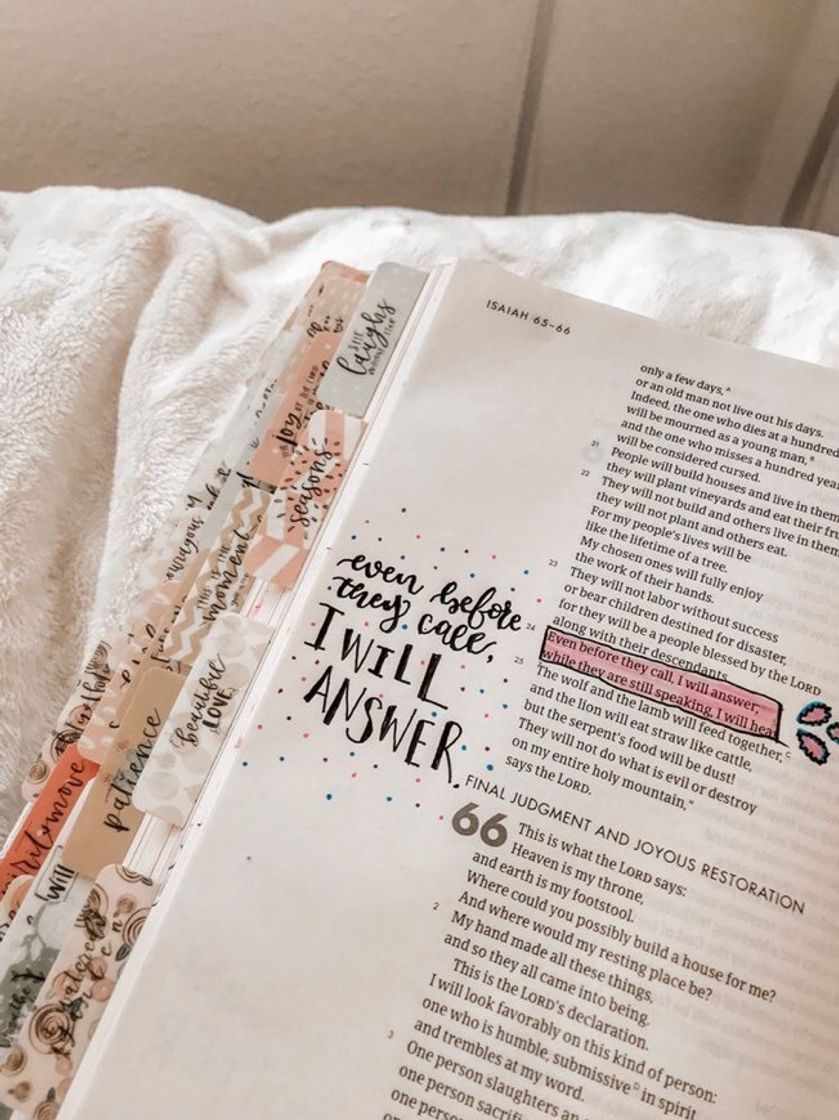 ISAIAH 65–66
only a few days,ᴬ
or an old man not live out his days.
Indeed, the one who dies at a hundred
will be mourned as a young man,ᴮ
and the one who misses a hundred
will be considered cursed.
21 People will build houses and live in them
they will plant vineyards and eat their
22 They will not build and others live in them
they will not plant and others eat.
For my people's lives will be
like the lifetime of a tree.
My chosen ones will fully enjoy
the work of their hands.
23 They will not labor without success
or bear children destined for disaster,
for they will be a people blessed by the LORD
along with their descendants.
24 Even before they call, I will answer;
while they are still speaking, I will hear
25 The wolf and the lamb will feed together,
and the lion will eat straw like cattle,
but the serpent's food will be dust!ᶜ
They will not do what is evil or destroy
on my entire holy mountain,"
says the LORD.
FINAL JUDGMENT AND JOYOUS RESTORATION
66 This is what the LORD says:
Heaven is my throne,
and earth is my footstool.
Where could you possibly build a house for me?
And where would my resting place be?
2 My hand made all these things,
and so they all came into being.
This is the LORD's declaration.
I will look favorably on this kind of person:
one who is humble, submissiveᴰ in spirit
and trembles at my word.
3 One person slaughters an
one person sacrifi
one person
even before
they call,
I WILL
ANSWER.
SHE
laughs
joy
OF THE LORD
seasons
THIS IS THE
moment
beautiful
LOVE
patience
move
will